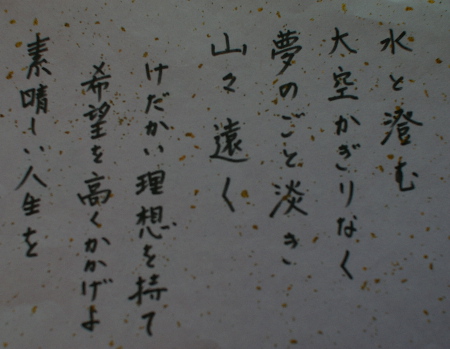 水と澄む
大空かぎりなく
夢のごと淡き
山々遠く
けだかい理想を持て
希望を高くかかげよ
素晴しい人生を